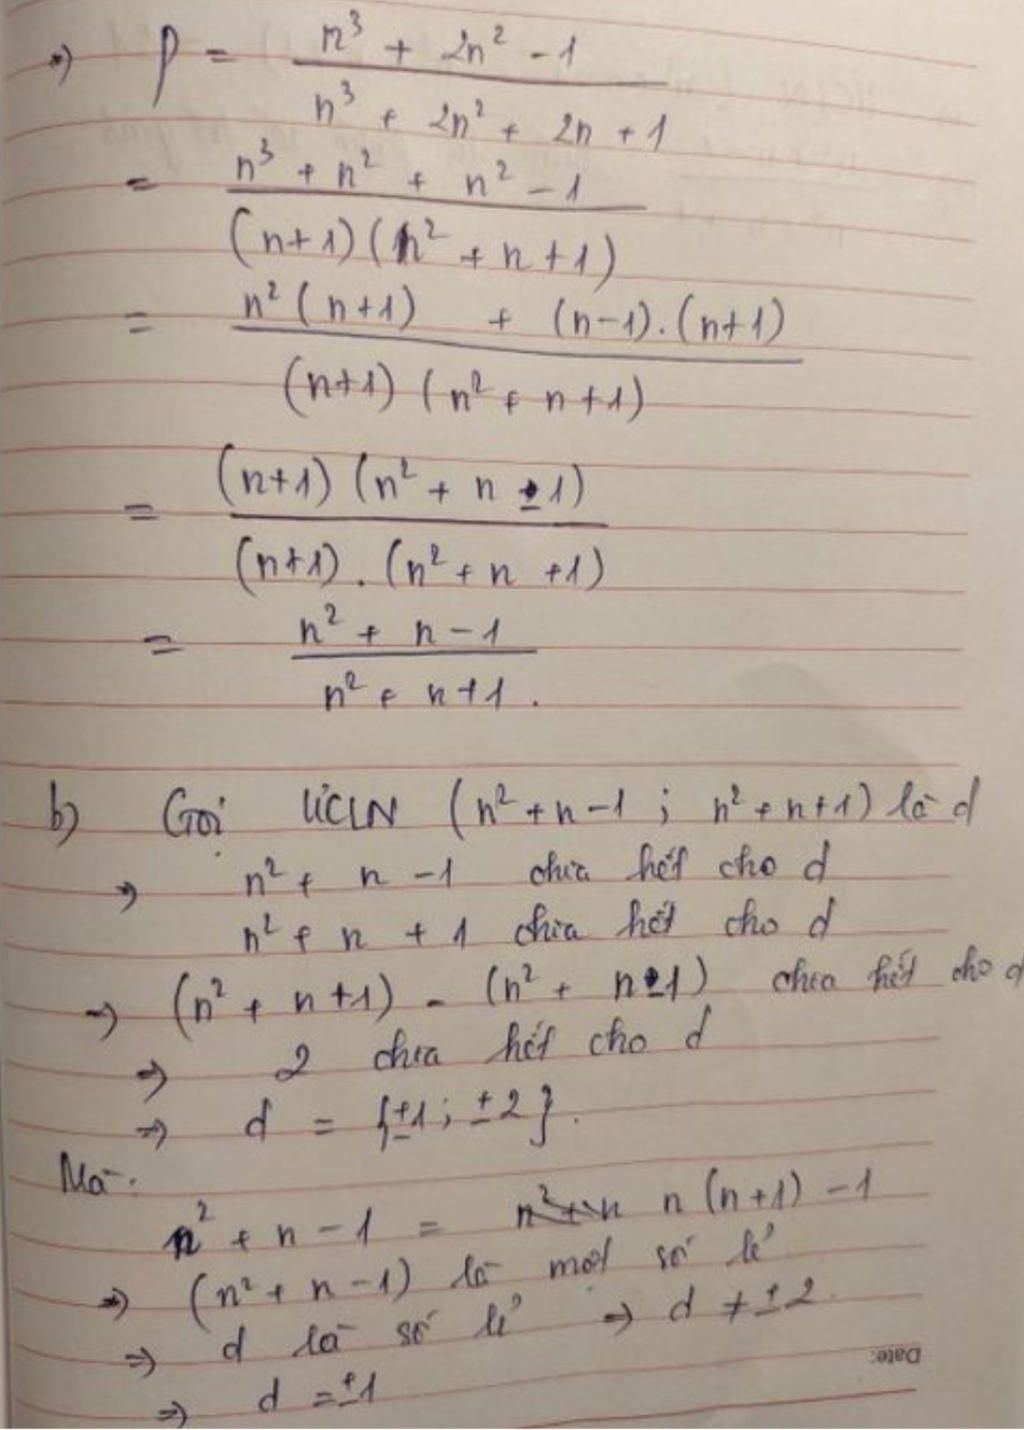 => P = (n³ + 2n² - 1) / (n³ + 2n² + 2n + 1)
= (n³ + n² + n² - 1) / ((n+1)(n² + n + 1))
= (n²(n+1) + (n-1).(n+1)) / ((n+1)(n² + n + 1))
= ((n+1)(n² + n - 1)) / ((n+1).(n² + n + 1))
= (n² + n - 1) / (n² + n + 1).
b) Gọi ƯCLN (n² + n - 1 ; n² + n + 1) là d
=> n² + n - 1 chia hết cho d
n² + n + 1 chia hết cho d
=> (n² + n + 1) - (n² + n - 1) chia hết cho d
=> 2 chia hết cho d
=> d = {±1 ; ±2}.
Mà:
n² + n - 1 = n(n+1) - 1
=> (n² + n - 1) là một số lẻ
=> d là số lẻ => d ≠ ±2.
=> d = ±1
Date: